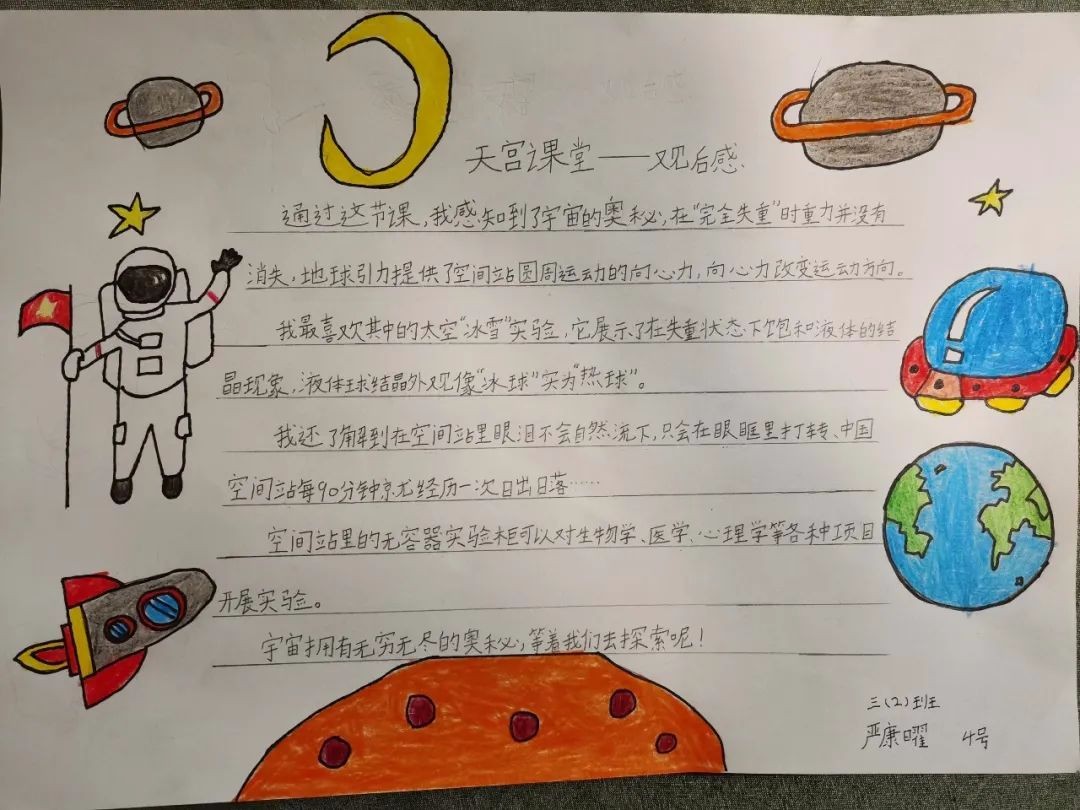 天宫课堂——观后感
通过这节课，我感知到了宇宙的奥秘，在“完全失重”时重力并没有
消失，地球引力提供了空间站圆周运动的向心力，向心力改变运动方向。
我最喜欢其中的太空“冰雪”实验，它展示了在失重状态下饱和液体的结
晶现象，液体球结晶外观像“冰球”实为“热球”。
我还了解到在空间站里眼泪不会自然流下，只会在眼眶里打转、中国
空间站每90分钟就经历一次日出日落……
空间站里的无容器实验柜可以对生物学、医学、心理学等各种项目
开展实验。
宇宙拥有无穷无尽的奥秘，等着我们去探索呢！
三（2）班
严康曜 4号